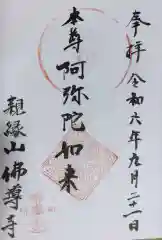 奉拝 令和六年九月二十一日
本尊 阿弥陀如来
親縁山佛尊寺